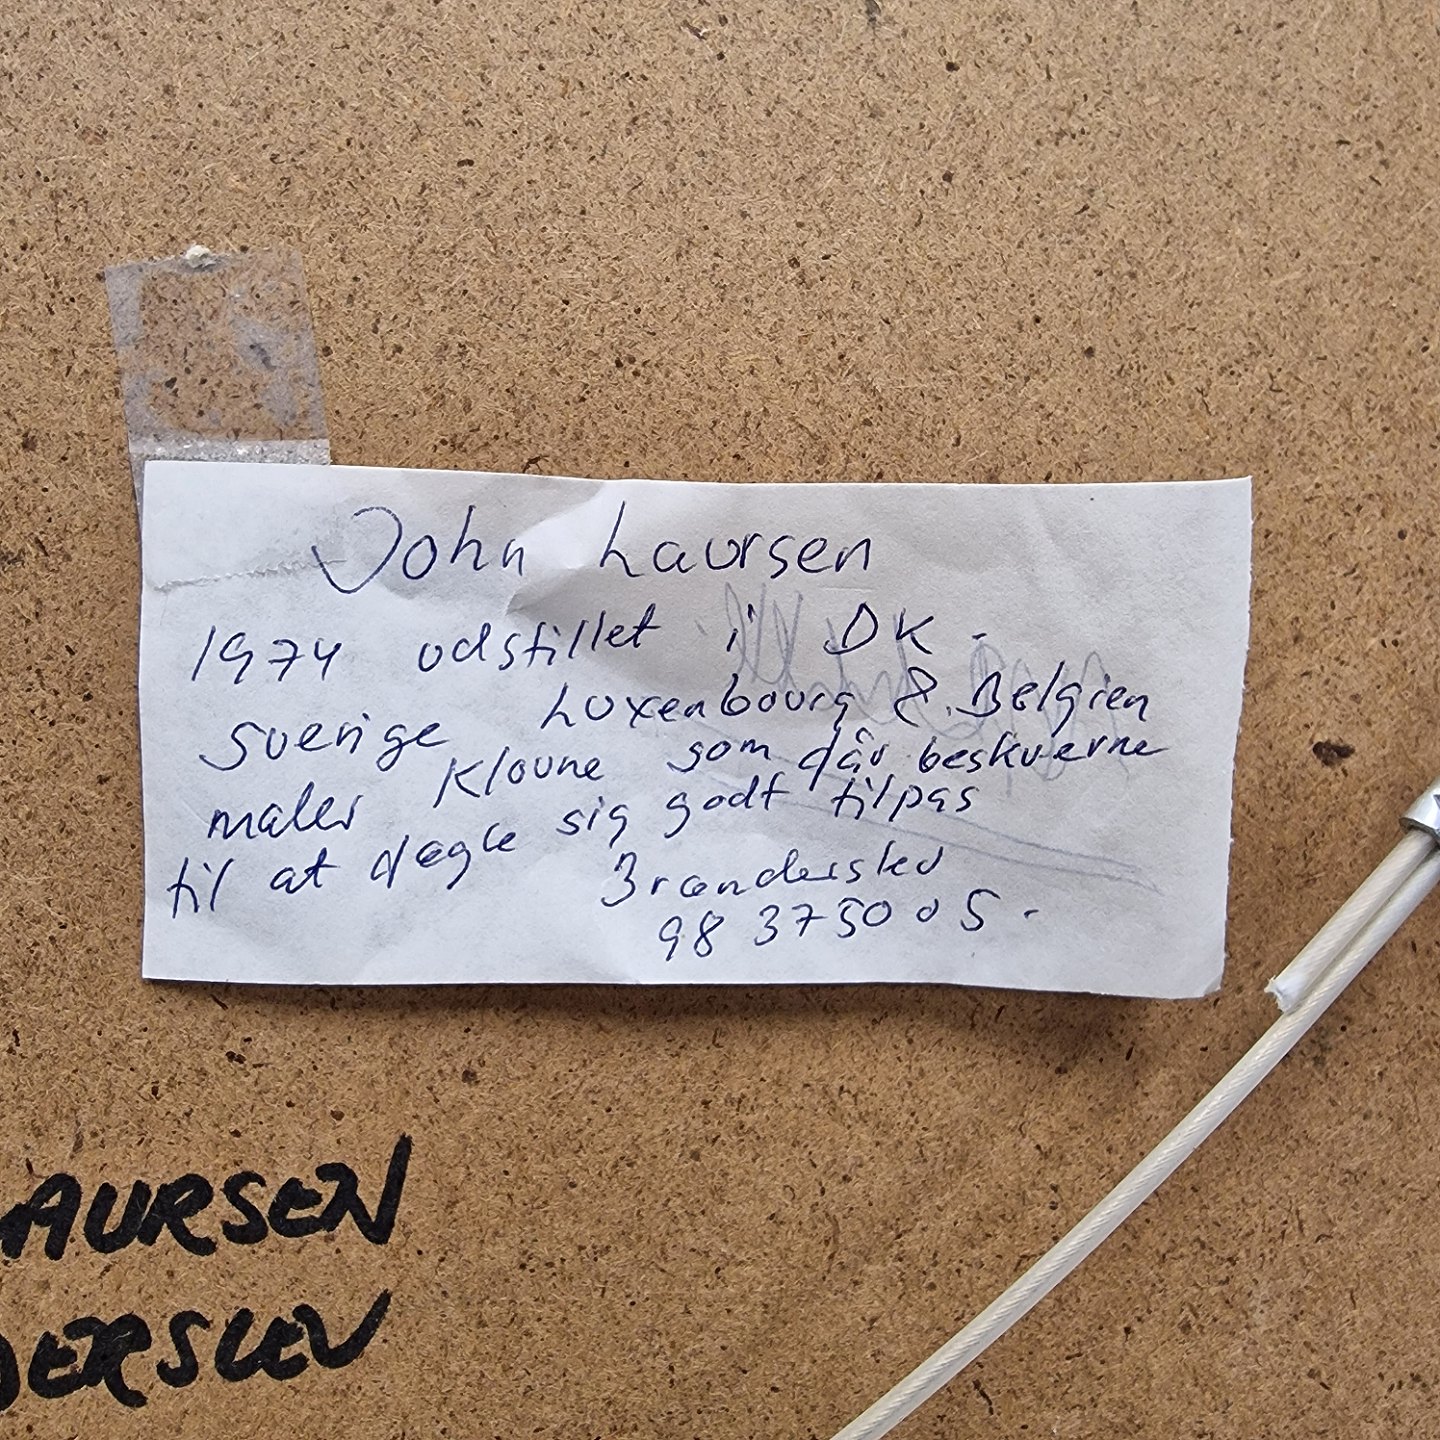 John Laursen
1974 udstillet i DK -
Sverige Luxenbourg & Belgien
maler Kloune som dår beskverne
til at dægle sig godt tilpas
Brønderslev
98 375005 -
AURSEN
DERSLEV